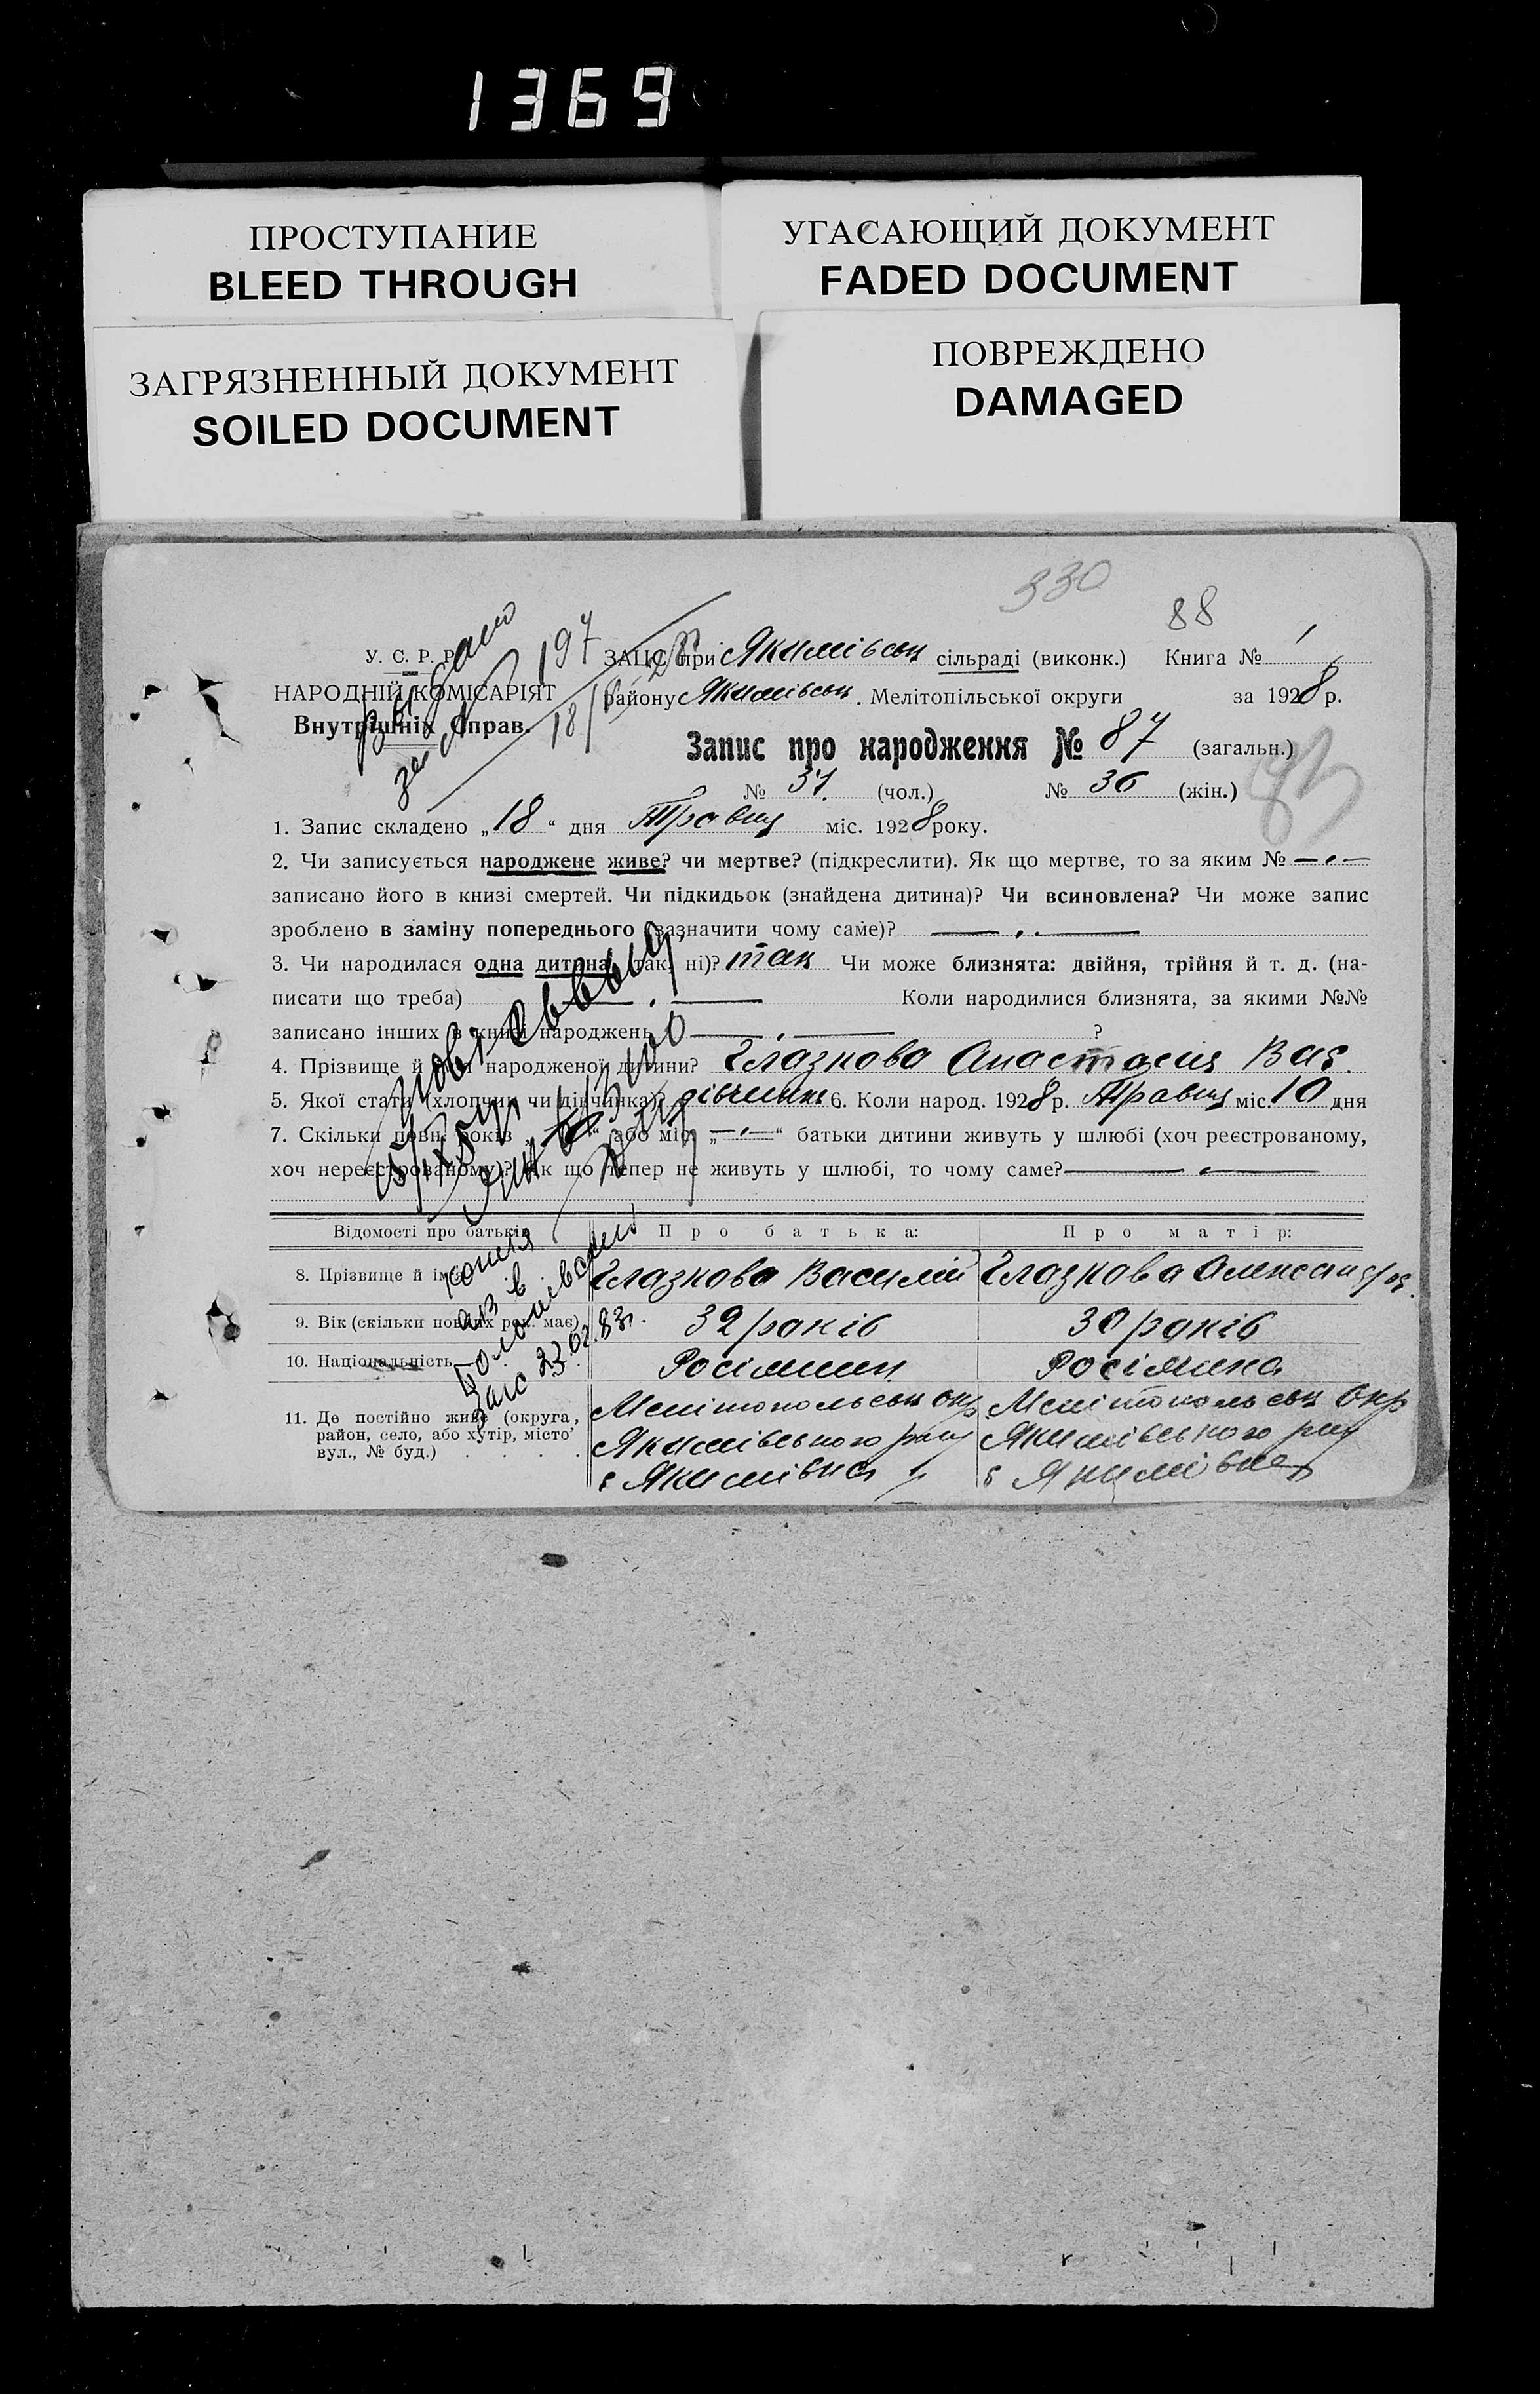 1369
ПРОСТУПАНИЕ
BLEED THROUGH
УГАСАЮЩИЙ ДОКУМЕНТ
FADED DOCUMENT
ЗАГРЯЗНЕННЫЙ ДОКУМЕНТ
SOILED DOCUMENT
ПОВРЕЖДЕНО
DAMAGED
330
88
У. С. Р. Р.
НАРОДНІЙ КОМІСАРІЯТ
Внутрішніх Справ.
Видано
197
ЗАПС при Якимівськ сільраді (виконк.) Книга № 1
району Якимівськ. Мелітопільської округи за 1928 р.
Запис про народження № 87 (загальн.)
№ 37. (чол.) № 36 (жін.)
83
1. Запис складено „18“ дня Травня міс. 1928 року.
2. Чи записується народжене живе? чи мертве? (підкреслити). Як що мертве, то за яким №
записано його в книзі смертей. Чи підкидьок (знайдена дитина)? Чи всиновлена? Чи може запис
зроблено в заміну попереднього (зазначити чому саме)?
3. Чи народилася одна дитина (так, ні)? так Чи може близнята: двійня, трійня й т. д. (на-
писати що треба) Коли народилися близнята, за якими №№
записано інших в книзі народжень ?
4. Прізвище й ім'я народженої дитини? Глазкова Анастасия Вас.
5. Якої стати (хлопчик чи дівчинка)? дівчинка 6. Коли народ. 1928 р. Травня міс. 10 дня
7. Скільки повн. років „ “ або міс. „ “ батьки дитини живуть у шлюбі (хоч реєстрованому,
хоч нереєстрованому)? Як що тепер не живуть у шлюбі, то чому саме?
Відомості про батьків Про батька: Про матір:
8. Прізвище й ім'я Глазкова Василій Глазкова Александра.
9. Вік (скільки повних рок. має) 32 років 30 років
10. Національність Росіянин Росіянка
11. Де постійно живе (округа, район, село, або хутір, місто вул., № буд.)
Мелітопольськ окр Якимівського рай с Якимівка
Мелітопольськ окр Якимівського рай с Якимівка